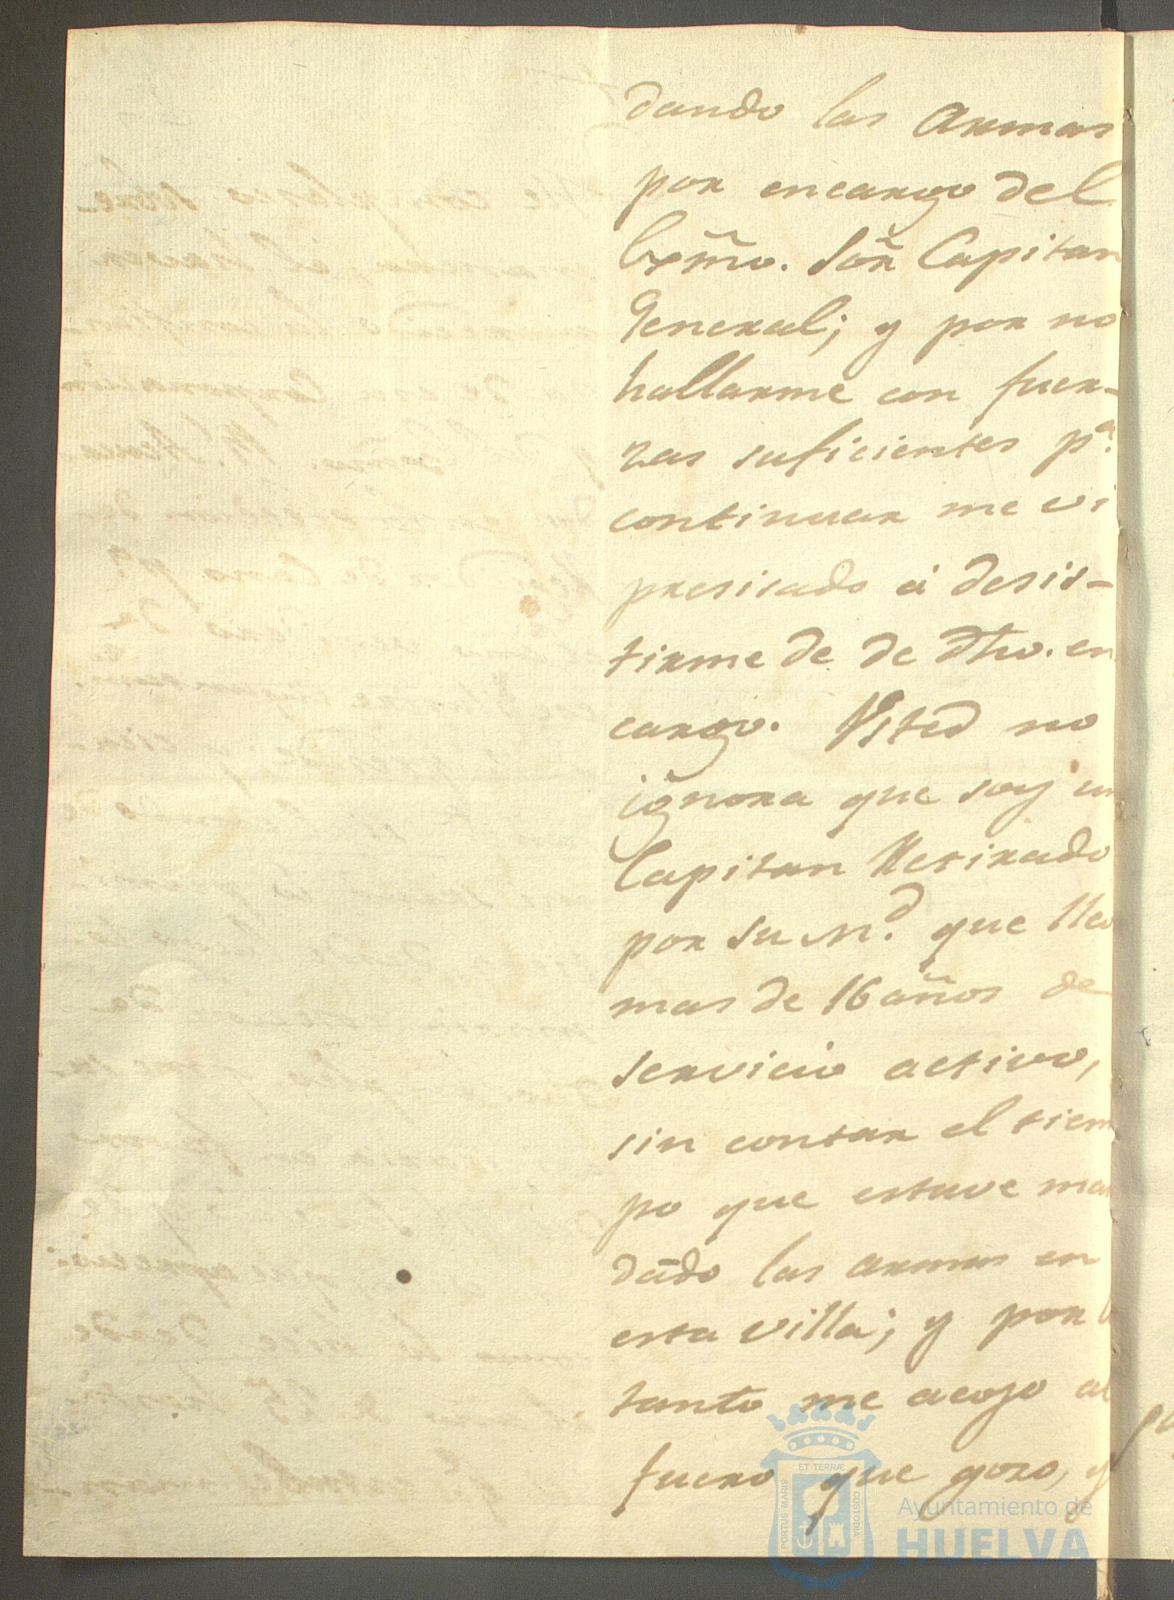 dando las Armas
por encargo del
Exm̃o. Señ Capitan
General; y por no
hallarme con fuer-
zas suficientes pª.
continuar me vi
presisado á desis-
tirme de de dho. en
cargo. Usted no
ignora que soy un
Capitan Retirado
por su M.d que llevo
mas de 16 años de
servicio activo,
sin contar el tiem
po que estuve man
dãdo las armas en
esta villa; y por lo
tanto me acojo al
fuero que gozo, y
PORTUS MARIS
ET TERRÆ
CUSTODIA
Ayuntamiento de
HUELVA